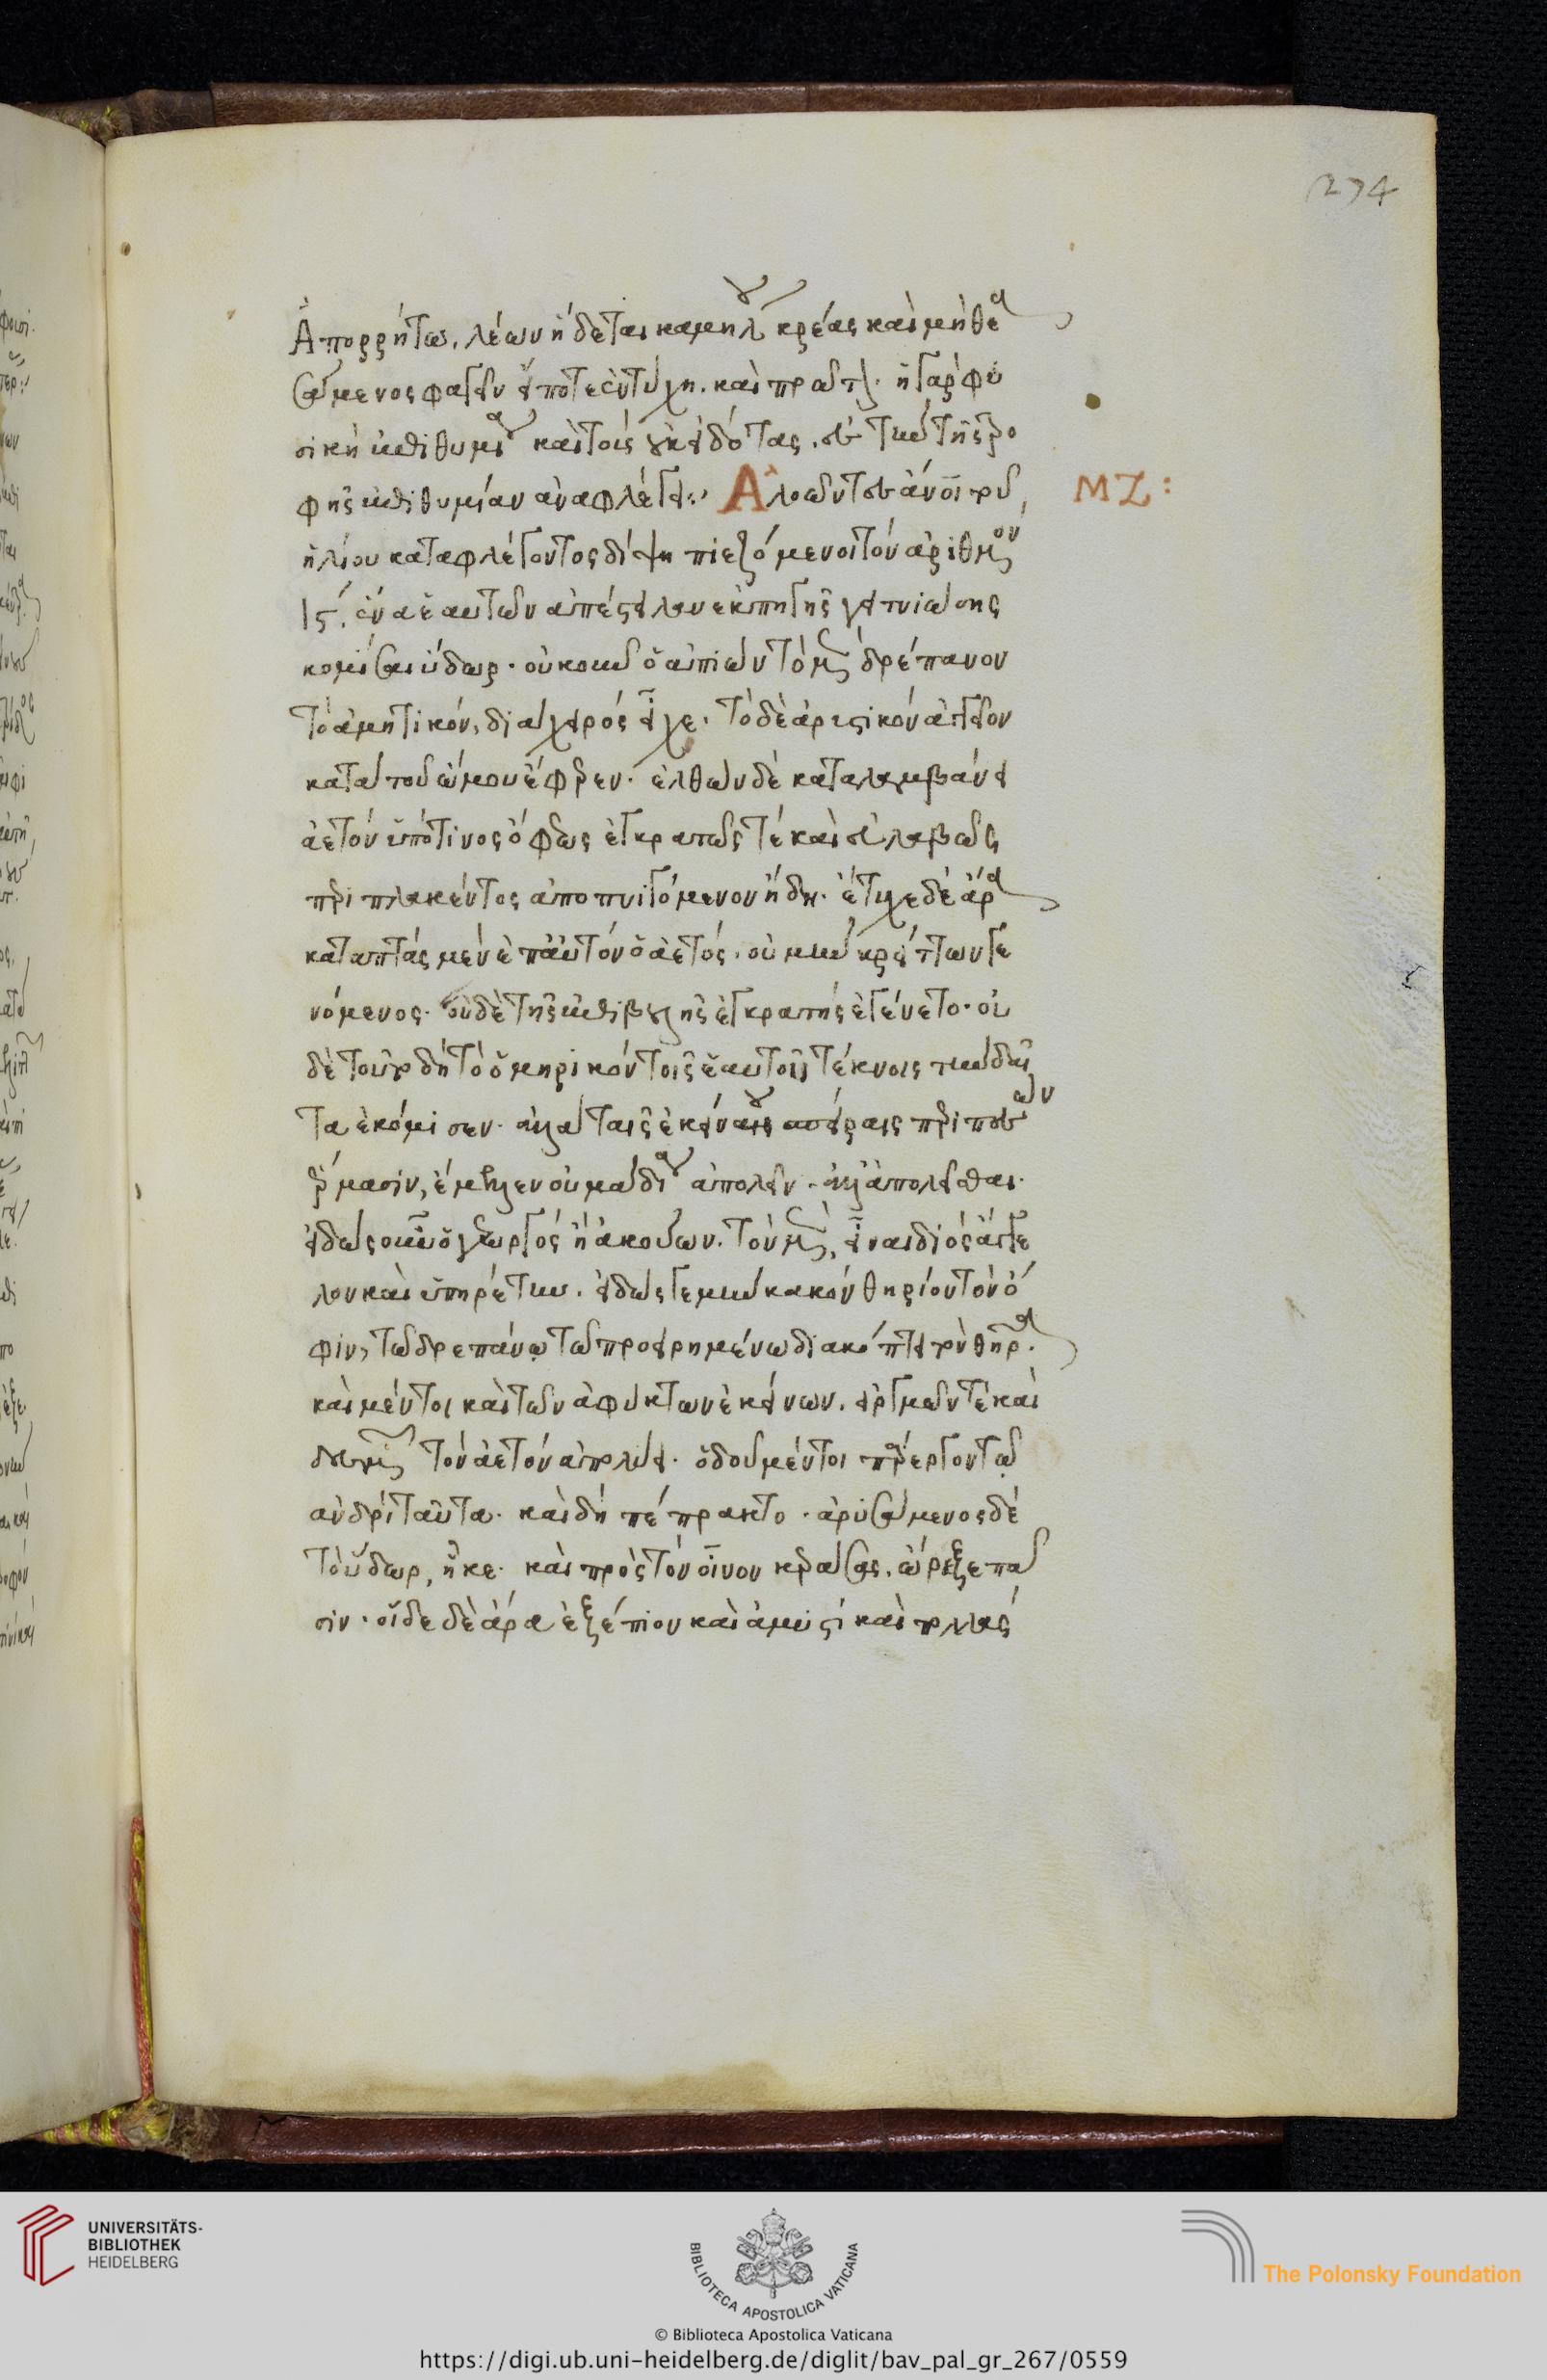 Ἀπορρήτω. λέων ἥδεται καμήλου κρέας καὶ μὴ θεα
σάμενος φαγεῖν εἴποτε ἐντύχη. καὶ πράττει. ἡ γὰρ φυ
σικὴ ἐπιθυμία καὶ τοὺς οὐκ εἰδότας. εἰς τὴν τῆς τρο
φῆς ἐπιθυμίαν ἀναφλέγει· Ἀλοῶντες ἄνοι τοῦ
ΜΖ:
ἡλίου καταφλέγοντος δίψη πιεζόμενοι τὸν ἀριθμὸν
Ις. ἕνα ἑαυτῶν ἀπέστειλαν ἐκ πηγῆς γειτνιώσης
κομίσαι ὕδωρ. οὐκοῦν ὁ ἀπιὼν τὸ μὲν δρέπανον
τὸ ἀμητικόν, διὰ χειρός εἶχε. τὸ δὲ ἀρυστικὸν ἀγγεῖον
κατὰ τοῦ ὤμου ἔφερεν. ἐλθὼν δὲ καταλαμβάνει
ἀετὸν ὑπό τινος ὄφεως ἐγκρατῶς τὲ καὶ εὐλαβῶς
περιπλακέντος ἀποπνιγόμενον ἤδη. ἔτυχε δὲ ἄρα
καταπτὰς μὲν ἐπ' αὐτὸν ὁ ἀετός. οὐ μὴν κρείττων γε
νόμενος. οὐδὲ τῆς ἐπιβουλῆς ἐγκρατὴς ἐγένετο. οὐ
δὲ τοῦτο δὴ τὸ ὁμηρικὸν τοῖς ἑαυτοῦ τέκνοις τὴν δαῖ
τα ἐκόμισεν. ἀλλὰ ταῖς ἐκείνου σπείραις περιπεσὼν
ἕρμασιν, ἔμελλεν οὐ μὰ δία ἀπολεῖν. ἀλλ' ἀπολεῖσθαι.
εἰδὼς οὖν ὁ γεωργὸς ἢ ἀκούων. τὸν μὲν, εἶναι διὸς ἄγγε
λον καὶ ὑπηρέτην. εἰδώς γε μὴν κακὸν θηρίον τὸν ὄ
φιν, τῶ δρεπάνω τῶ προειρημένω διακόπτει τὸν θῆρα.
καὶ μέντοι καὶ τῶν ἀφύκτων ἐκείνων. εἱργμῶν τὲ καὶ
δεσμῶν τὸν ἀετὸν ἀπολύει. ὁδοῦ μέντοι πάρεργον τῶ
ἀνδρὶ ταῦτα. καὶ δὴ πέπρακτο. ἀρυσάμενος δὲ
τὸ ὕδωρ, ἧκε. καὶ πρὸς τὸν οἶνον κεράσας. ὤρεξε πᾶ
σιν. οἵδε δὲ ἄρα ἐξέπιον καὶ ἀμυστὶ καὶ πολλὰς
274
UNIVERSITÄTS-
BIBLIOTHEK
HEIDELBERG
BIBLIOTECA APOSTOLICA VATICANA
The Polonsky Foundation
© Biblioteca Apostolica Vaticana
https://digi.ub.uni-heidelberg.de/diglit/bav_pal_gr_267/0559